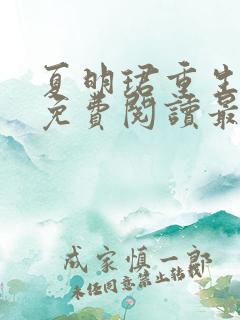 夏明珺重生
免費閱讀最
成家慎一郎
未经同意禁止转载